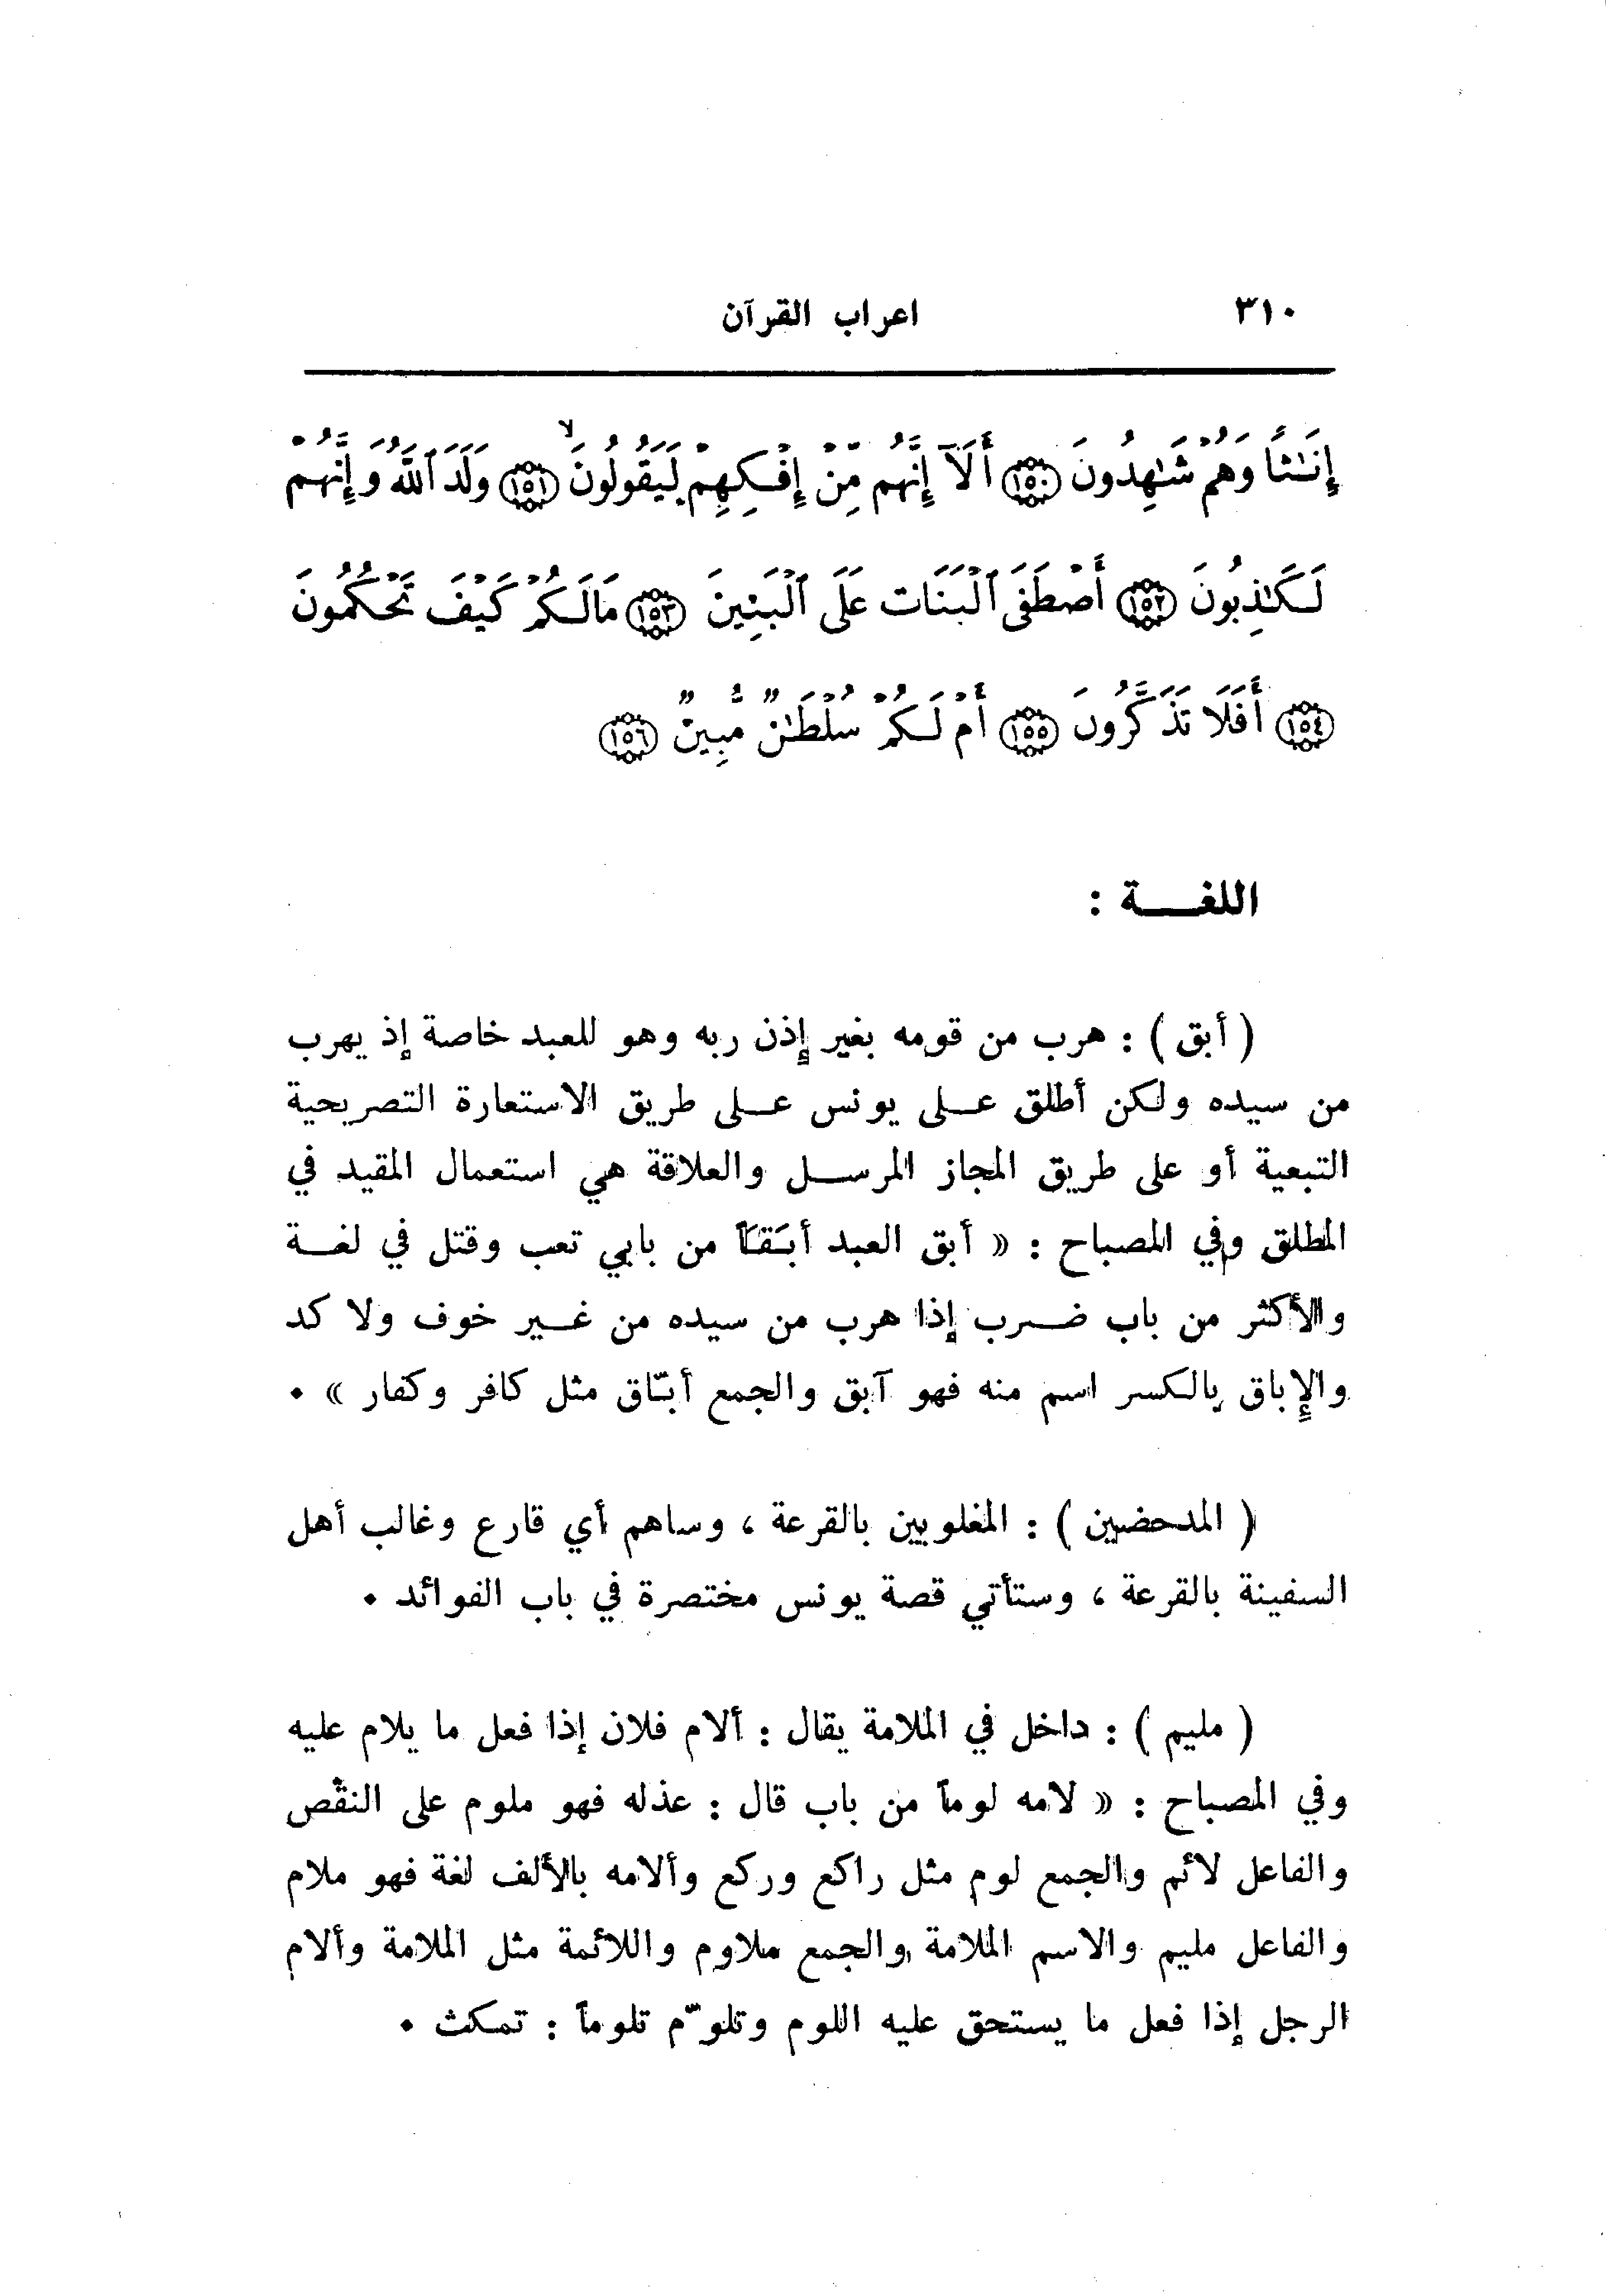 ٣١٠ اعراب القرآن
إِنَٰثًا وَهُمْ شَٰهِدُونَ ﴿١٥٠﴾ أَلَآ إِنَّهُم مِّنْ إِفْكِهِمْ لَيَقُولُونَ ۙ ﴿١٥١﴾ وَلَدَ ٱللَّهُ وَإِنَّهُمْ
لَكَٰذِبُونَ ﴿١٥٢﴾ أَصْطَفَى ٱلْبَنَاتِ عَلَى ٱلْبَنِينَ ﴿١٥٣﴾ مَا لَكُمْ كَيْفَ تَحْكُمُونَ
﴿١٥٤﴾ أَفَلَا تَذَكَّرُونَ ﴿١٥٥﴾ أَمْ لَكُمْ سُلْطَٰنٌ مُّبِينٌ ﴿١٥٦﴾
اللغـــة :
( أبق ) : هرب من قومه بغير إذن ربه وهو للعبد خاصة إذ يهرب
من سيده ولكن أطلق عـلى يونس عـلى طريق الاستعارة التصريحية
التبعية أو على طريق المجاز المرسـل والعلاقة هي استعمال المقيد في
المطلق وفي المصباح : « أبق العبد أبَقاً من بابي تعب وقتل في لغـة
والأكثر من باب ضـرب إذا هرب من سيده من غـير خوف ولا كد
والإباق بالكسر اسم منه فهو آبق والجمع أبّاق مثل كافر وكفار » .
( المدحضين ) : المغلوبين بالقرعة ، وساهم أي قارع وغالب أهل
السفينة بالقرعة ، وستأتي قصة يونس مختصرة في باب الفوائد .
( مليم ) : داخل في الملامة يقال : ألام فلان إذا فعل ما يلام عليه
وفي المصباح : « لامه لوماً من باب قال : عذله فهو ملوم على النقص
والفاعل لائم والجمع لوم مثل راكع وركع وألامه بالألف لغة فهو ملام
والفاعل مليم والاسم الملامة والجمع ملاوم واللائمة مثل الملامة وألام
الرجل إذا فعل ما يستحق عليه اللوم وتلوّم تلوماً : تمكث .